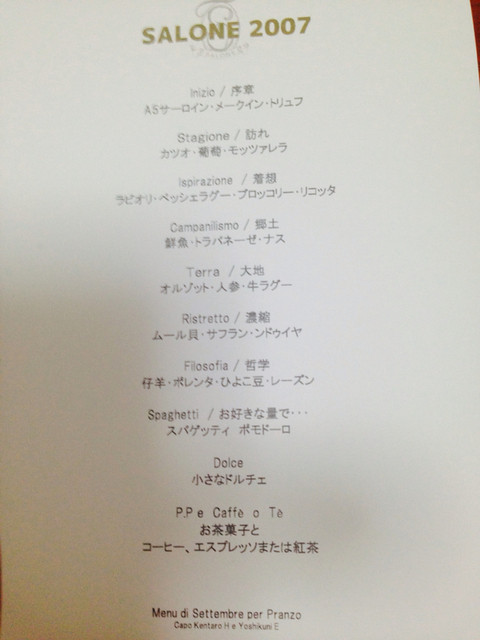 SALONE 2007
Inizio / 序章
ASサーロイン・メークイン・トリュフ
Stagione / 訪れ
カツオ・葡萄・モッツァレラ
Ispirazione / 着想
ラビオリ・ペッシェラグー・ブロッコリー・リコッタ
Campanilismo / 郷土
鮮魚・トラパネーゼ・ナス
Terra / 大地
オルゾット・人参・牛ラグー
Ristretto / 濃縮
ムール貝・サフラン・ンドゥイヤ
Filosofia / 哲学
仔羊・ポレンタ・ひよこ豆・レーズン
Spaghetti / お好きな量で・・・
スパゲッティ ポモドーロ
Dolce
小さなドルチェ
P.P e Caffè o Tè
お茶菓子と
コーヒー、エスプレッソまたは紅茶
Menu di Settembre per Pranzo
Capo Kentaro H e Yoshikuni E